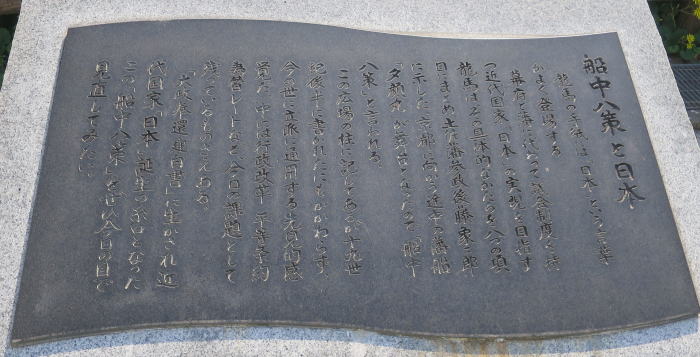 船中八策と日本
龍馬の手紙には「日本」という言葉
がよく登場する
幕府と藩に代わって議会制度を持
つ近代国家「日本」の実現を目指す
龍馬はその具体的なかたちを八つの項
目にまとめ土佐藩参政後藤象二郎
に示した京都に向かう途中の藩船
「夕顔丸」が舞台となったので「船中
八策」と言われる
この広場の柱に記してあるが十九世
紀後半に書かれたにもかかわらず、
今の世に立派に通用する先見的感
覚だ。中には行政改革、不平等条約
為替レートなど、今日の課題として
残っているものさえある。
「大政奉還建白書」に生かされ近
代国家「日本」誕生の糸口となった
この「船中八策」を、ぜひ今日の目で
見直してみたい。